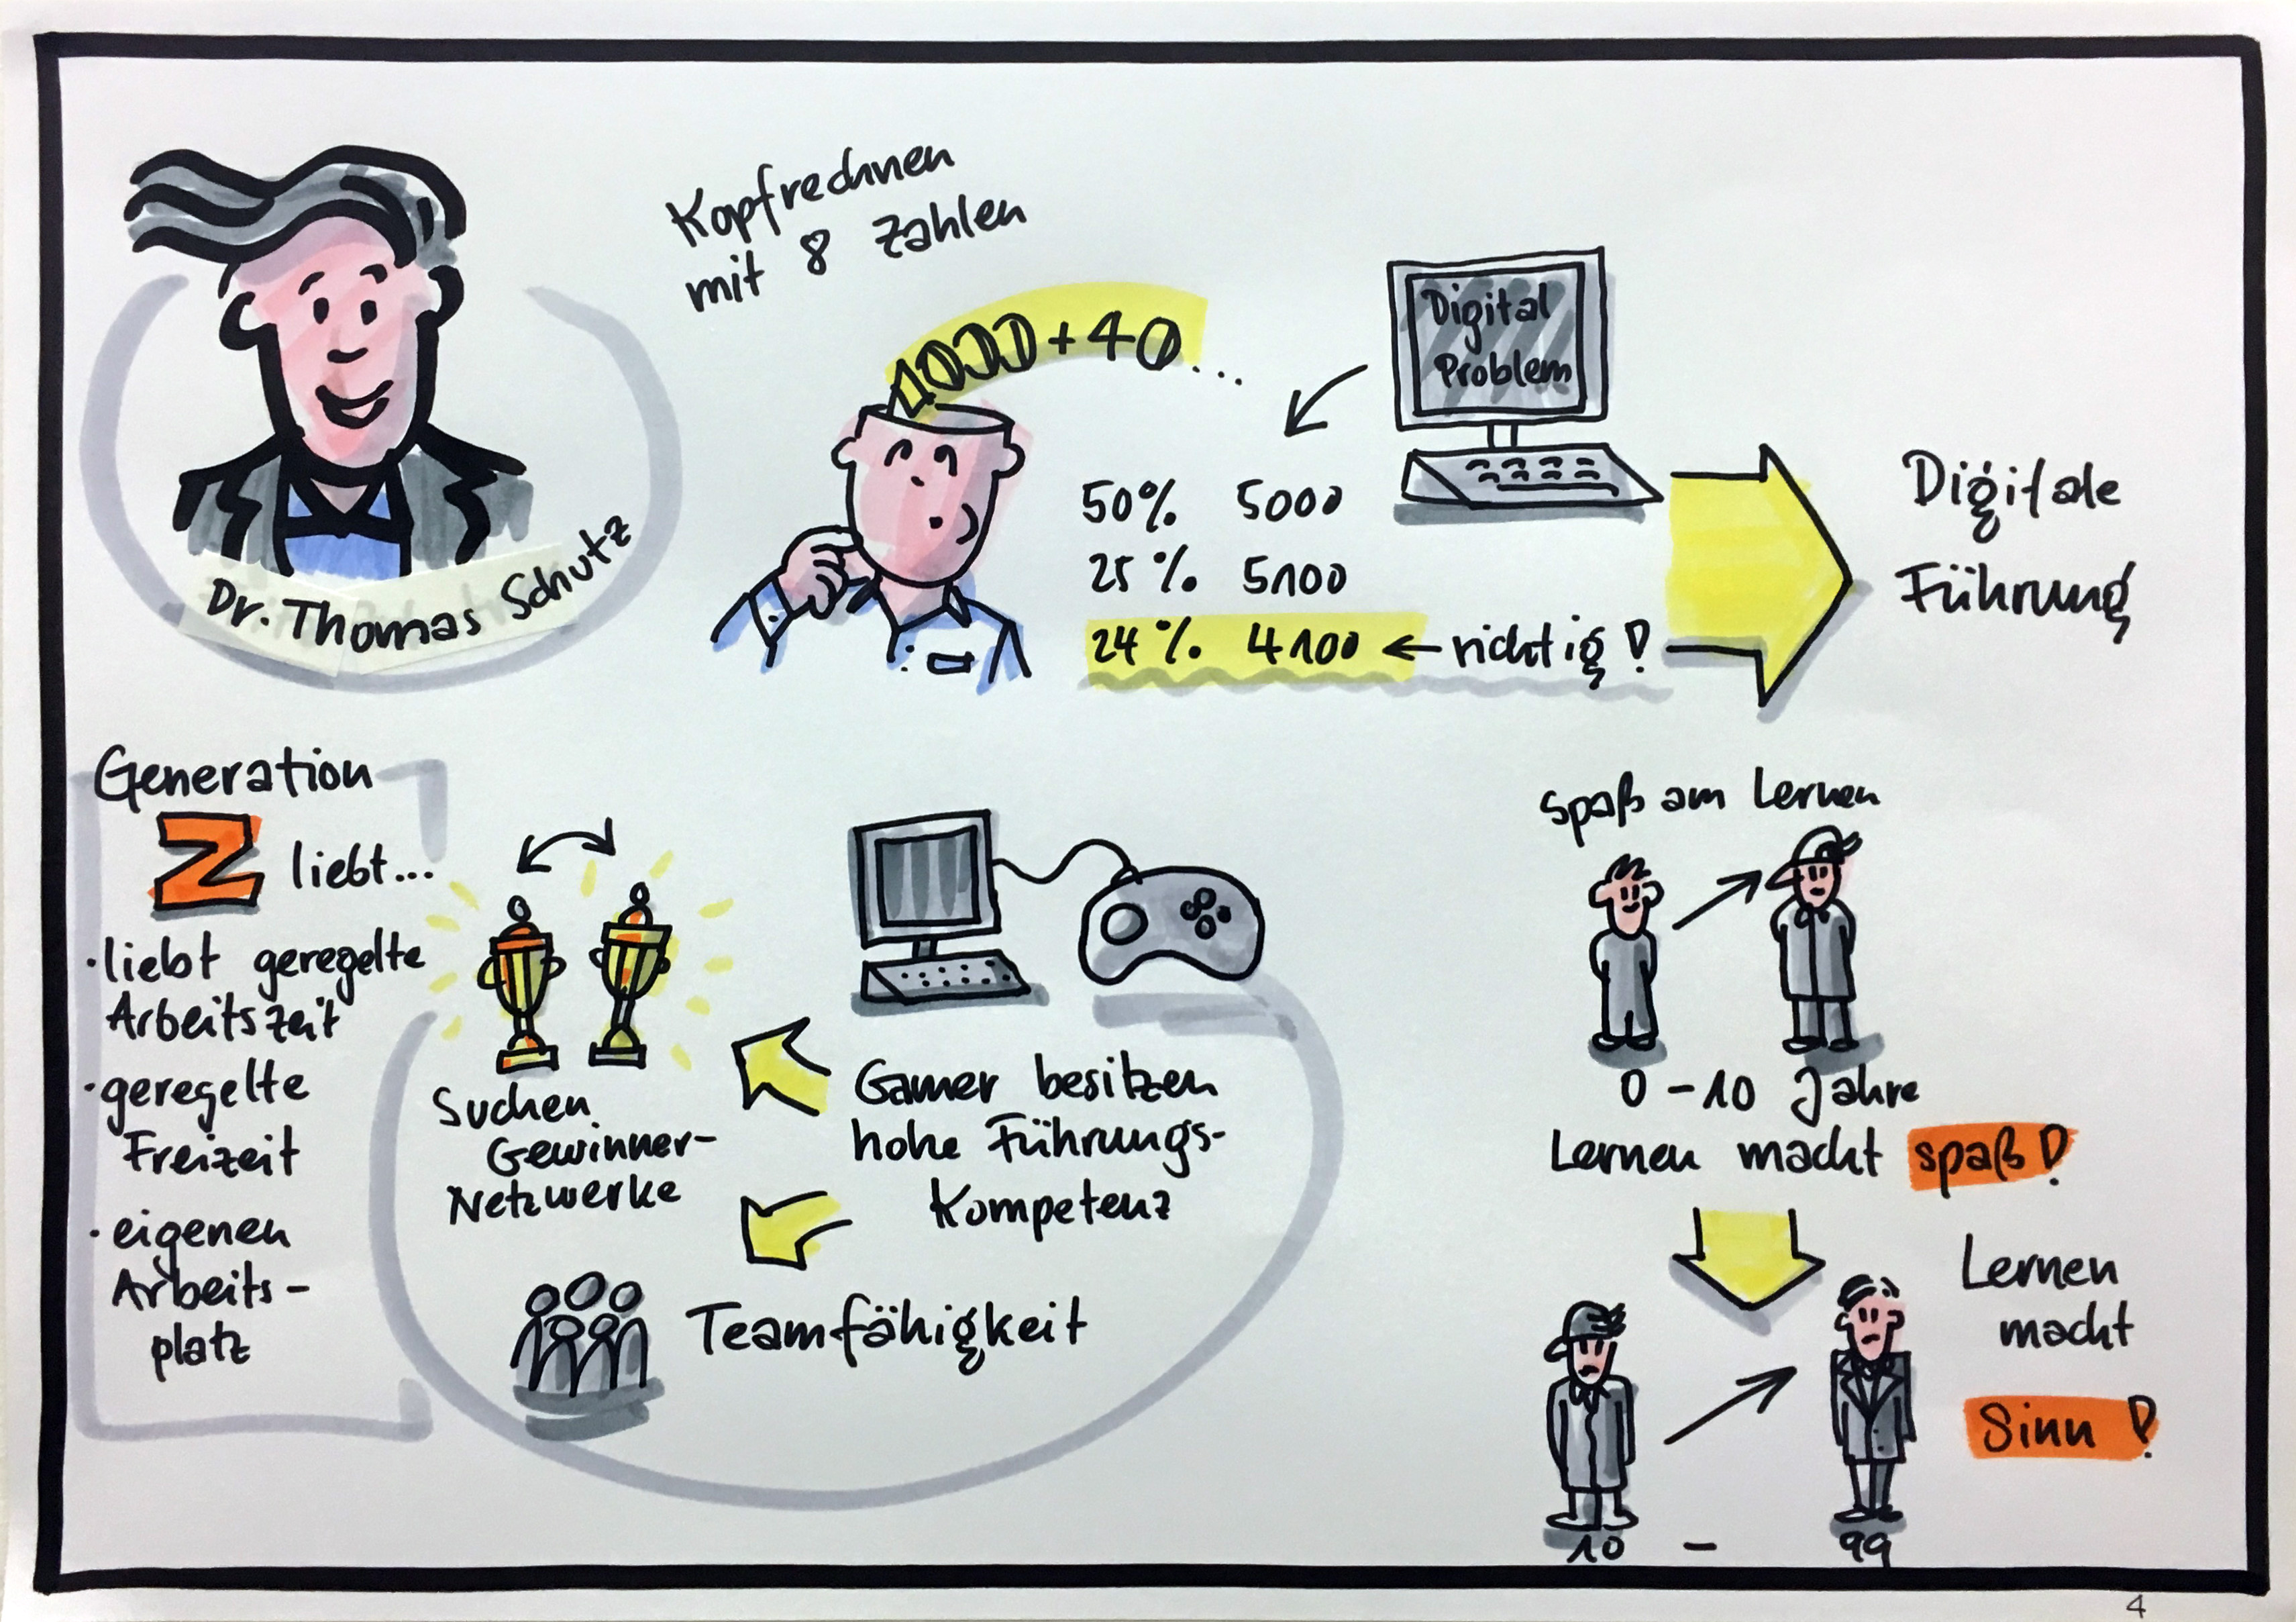 Dr. Thomas Schutz
Kopfrechnen
mit 8 Zahlen
1000 + 40 ...
Digital
Problem
50% 5000
25% 5100
24% 4100 ← richtig!
Digitale
Führung
Generation
Z liebt...
· liebt geregelte
Arbeitszeit
· geregelte
Freizeit
· eigenen
Arbeits-
platz
Suchen
Gewinner-
Netzwerke
Gamer besitzen
hohe Führungs-
Kompetenz
Teamfähigkeit
Spaß am Lernen
0 - 10 Jahre
Lernen macht spaß!
Lernen
macht
Sinn!
10 - 99
4